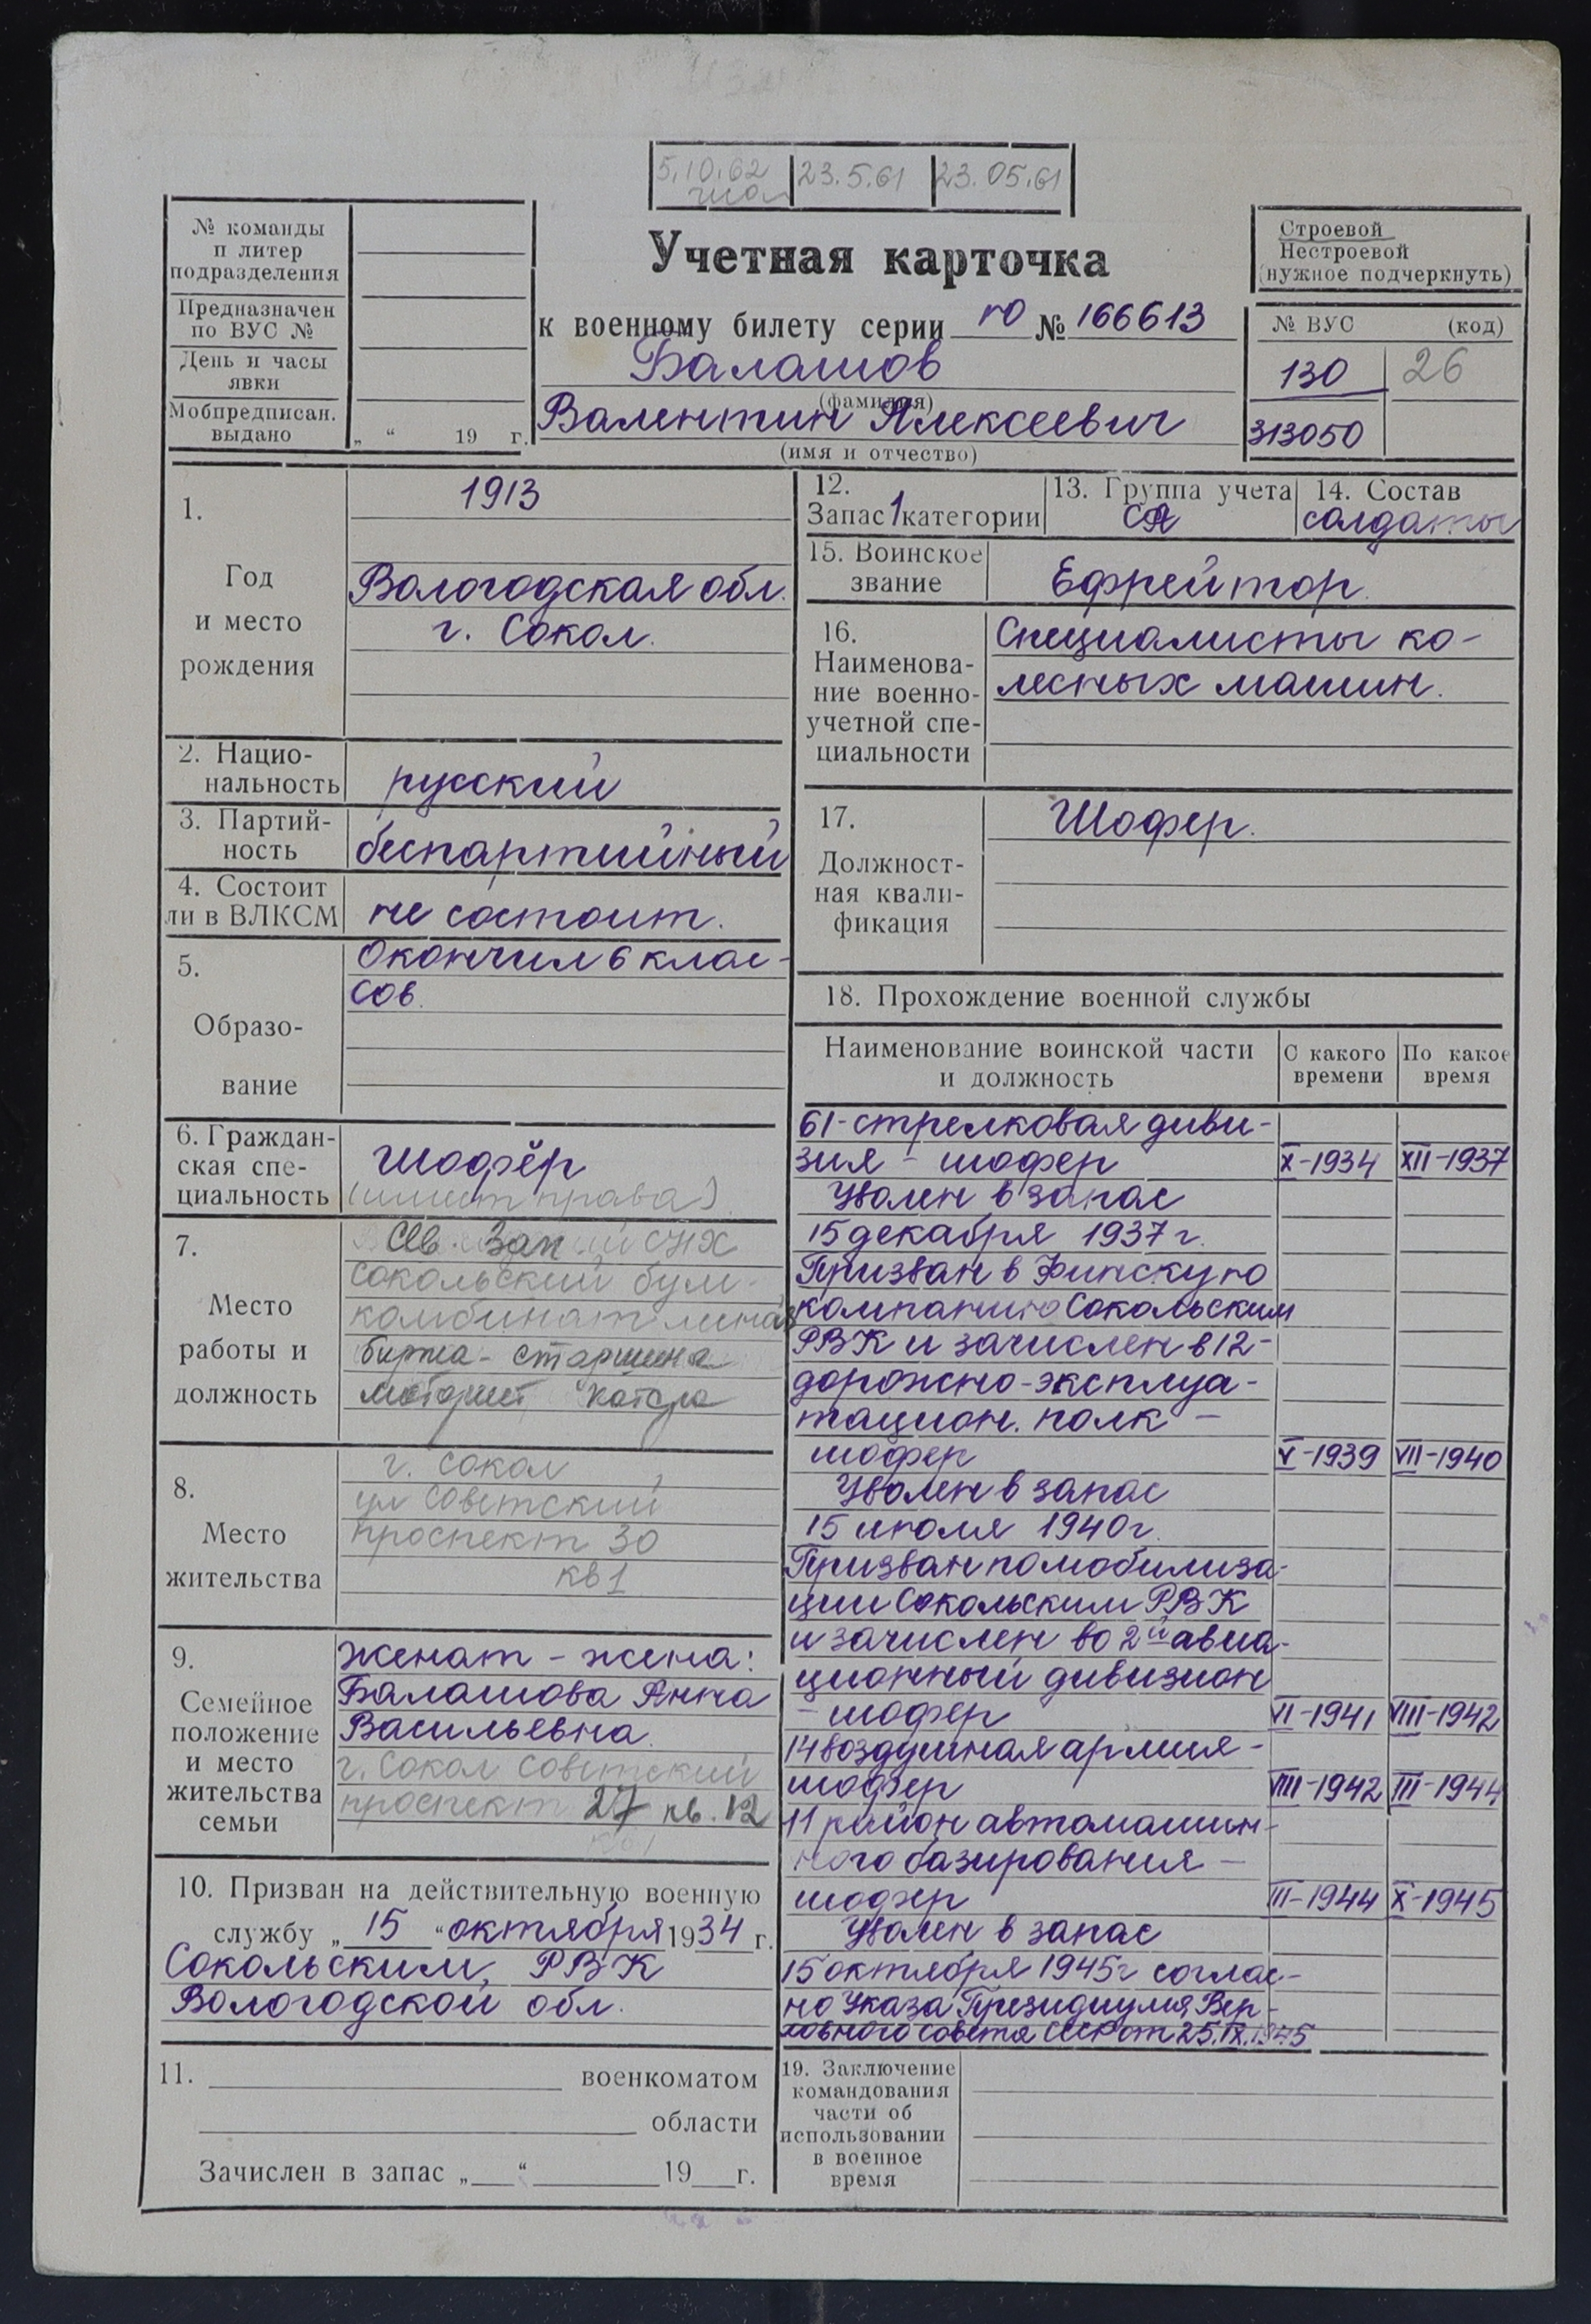 5.10.62 23.5.61 23.05.61
№ команды
п литер
подразделения
Предназначен
по ВУС №
День и часы
явки
Мобпредписан.
выдано „ “ 19 г.
Учетная карточка
к военному билету серии ГО № 166613
Балашов
(фамилия)
Валентин Алексеевич
(имя и отчество)
Строевой
Нестроевой
(нужное подчеркнуть)
№ ВУС (код)
130 26
313050
1. 1913
Год
и место
рождения
Вологодская обл.
г. Сокол.
2. Нацио-
нальность русский
3. Партий-
ность беспартийный
4. Состоит
ли в ВЛКСМ не состоит.
5.
Образо-
вание
Окончил 6 клас-
сов.
6. Граждан-
ская спе-
циальность
шофёр
(имеет права)
7.
Место
работы и
должность
Сев. Зап СНХ
Сокольский бум-
комбинат
биржа - старшина
моторист катера
8.
Место
жительства
г. Сокол
ул Советский
проспект 30
кв 1
9.
Семейное
положение
и место
жительства
семьи
женат - жена:
Балашова Анна
Васильевна.
г. Сокол Советский
проспект 27 кв. 12
10. Призван на действительную военную
службу „ 15 “ октября 1934 г.
Сокольским, РВК
Вологодской обл.
11. военкоматом
области
Зачислен в запас „ “ 19 г.
12.
Запас 1 категории
13. Группа учета
СА
14. Состав
солдаты
15. Воинское
звание Ефрейтор.
16.
Наименова-
ние военно-
учетной спе-
циальности
Специалисты ко-
лесных машин.
17.
Должност-
ная квали-
фикация
Шофер.
18. Прохождение военной службы
Наименование воинской части
и должность
С какого
времени
По какое
время
61-стрелковая диви-
зия - шофер X-1934 XII-1937
Уволен в запас
15 декабря 1937 г.
Призван в Финскую
компанию Сокольским
РВК и зачислен в 12-
дорожно-эксплуа-
тацион. полк -
шофер V-1939 VII-1940
Уволен в запас
15 июля 1940 г.
Призван по мобилиза-
ции Сокольским РВК
и зачислен во 2й авиа-
ционный дивизион
- шофер VI-1941 VIII-1942
14 воздушная армия -
шофер VIII-1942 III-1944
11 район автомашин-
ного базирования -
шофер III-1944 X-1945
Уволен в запас
15 октября 1945 г соглас-
но Указа Президиума Вер-
ховного совета СССР от 25.IX.1945
19. Заключение
командования
части об
использовании
в военное
время